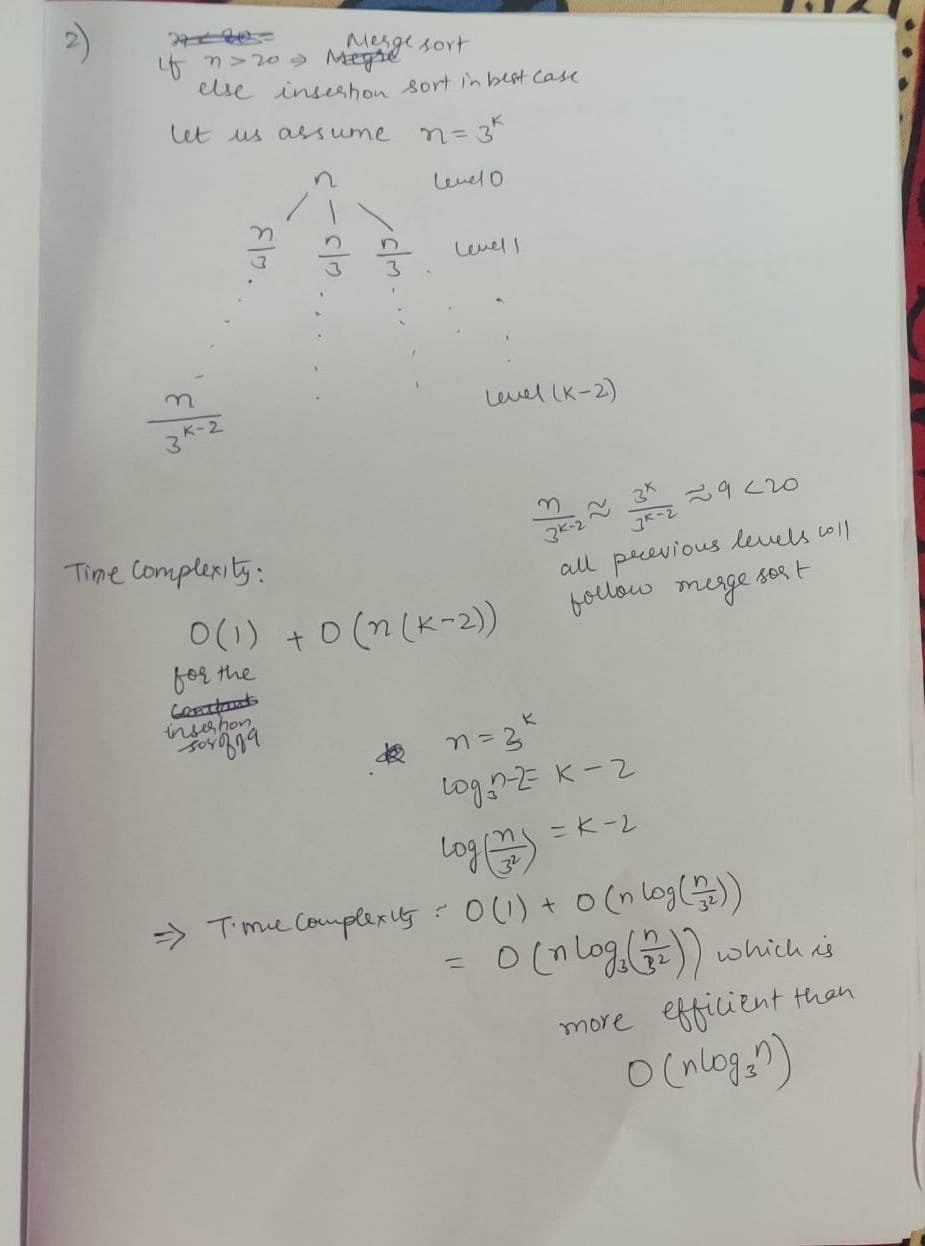 2)
if n > 20 ⇒ Merge sort
else insertion sort in best case
let us assume n = 3^k
n level 0
n/3 n/3 n/3 level 1
n/3^(k-2) level (k-2)
n/3^(k-2) ≈ 3^k/3^(k-2) ≈ 9 < 20
all previous levels will
follow merge sort
Time complexity:
O(1) + O(n(k-2))
for the
insertion
n = 3^k
log_3 n - 2 = k - 2
log(n/3^2) = k - 2
⇒ Time complexity : O(1) + O(n log(n/3^2))
= O(n log_3(n/3^2)) which is
more efficient than
O(n log_3 n)